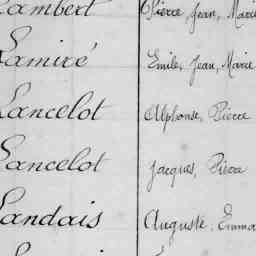 Lambert Pierre, Jean, Marie
Lamiré Emile, Jean, Marie
Lancelot Alphonse, Pierre
Lancelot Jacques, Pierre
Landais Auguste, Emma